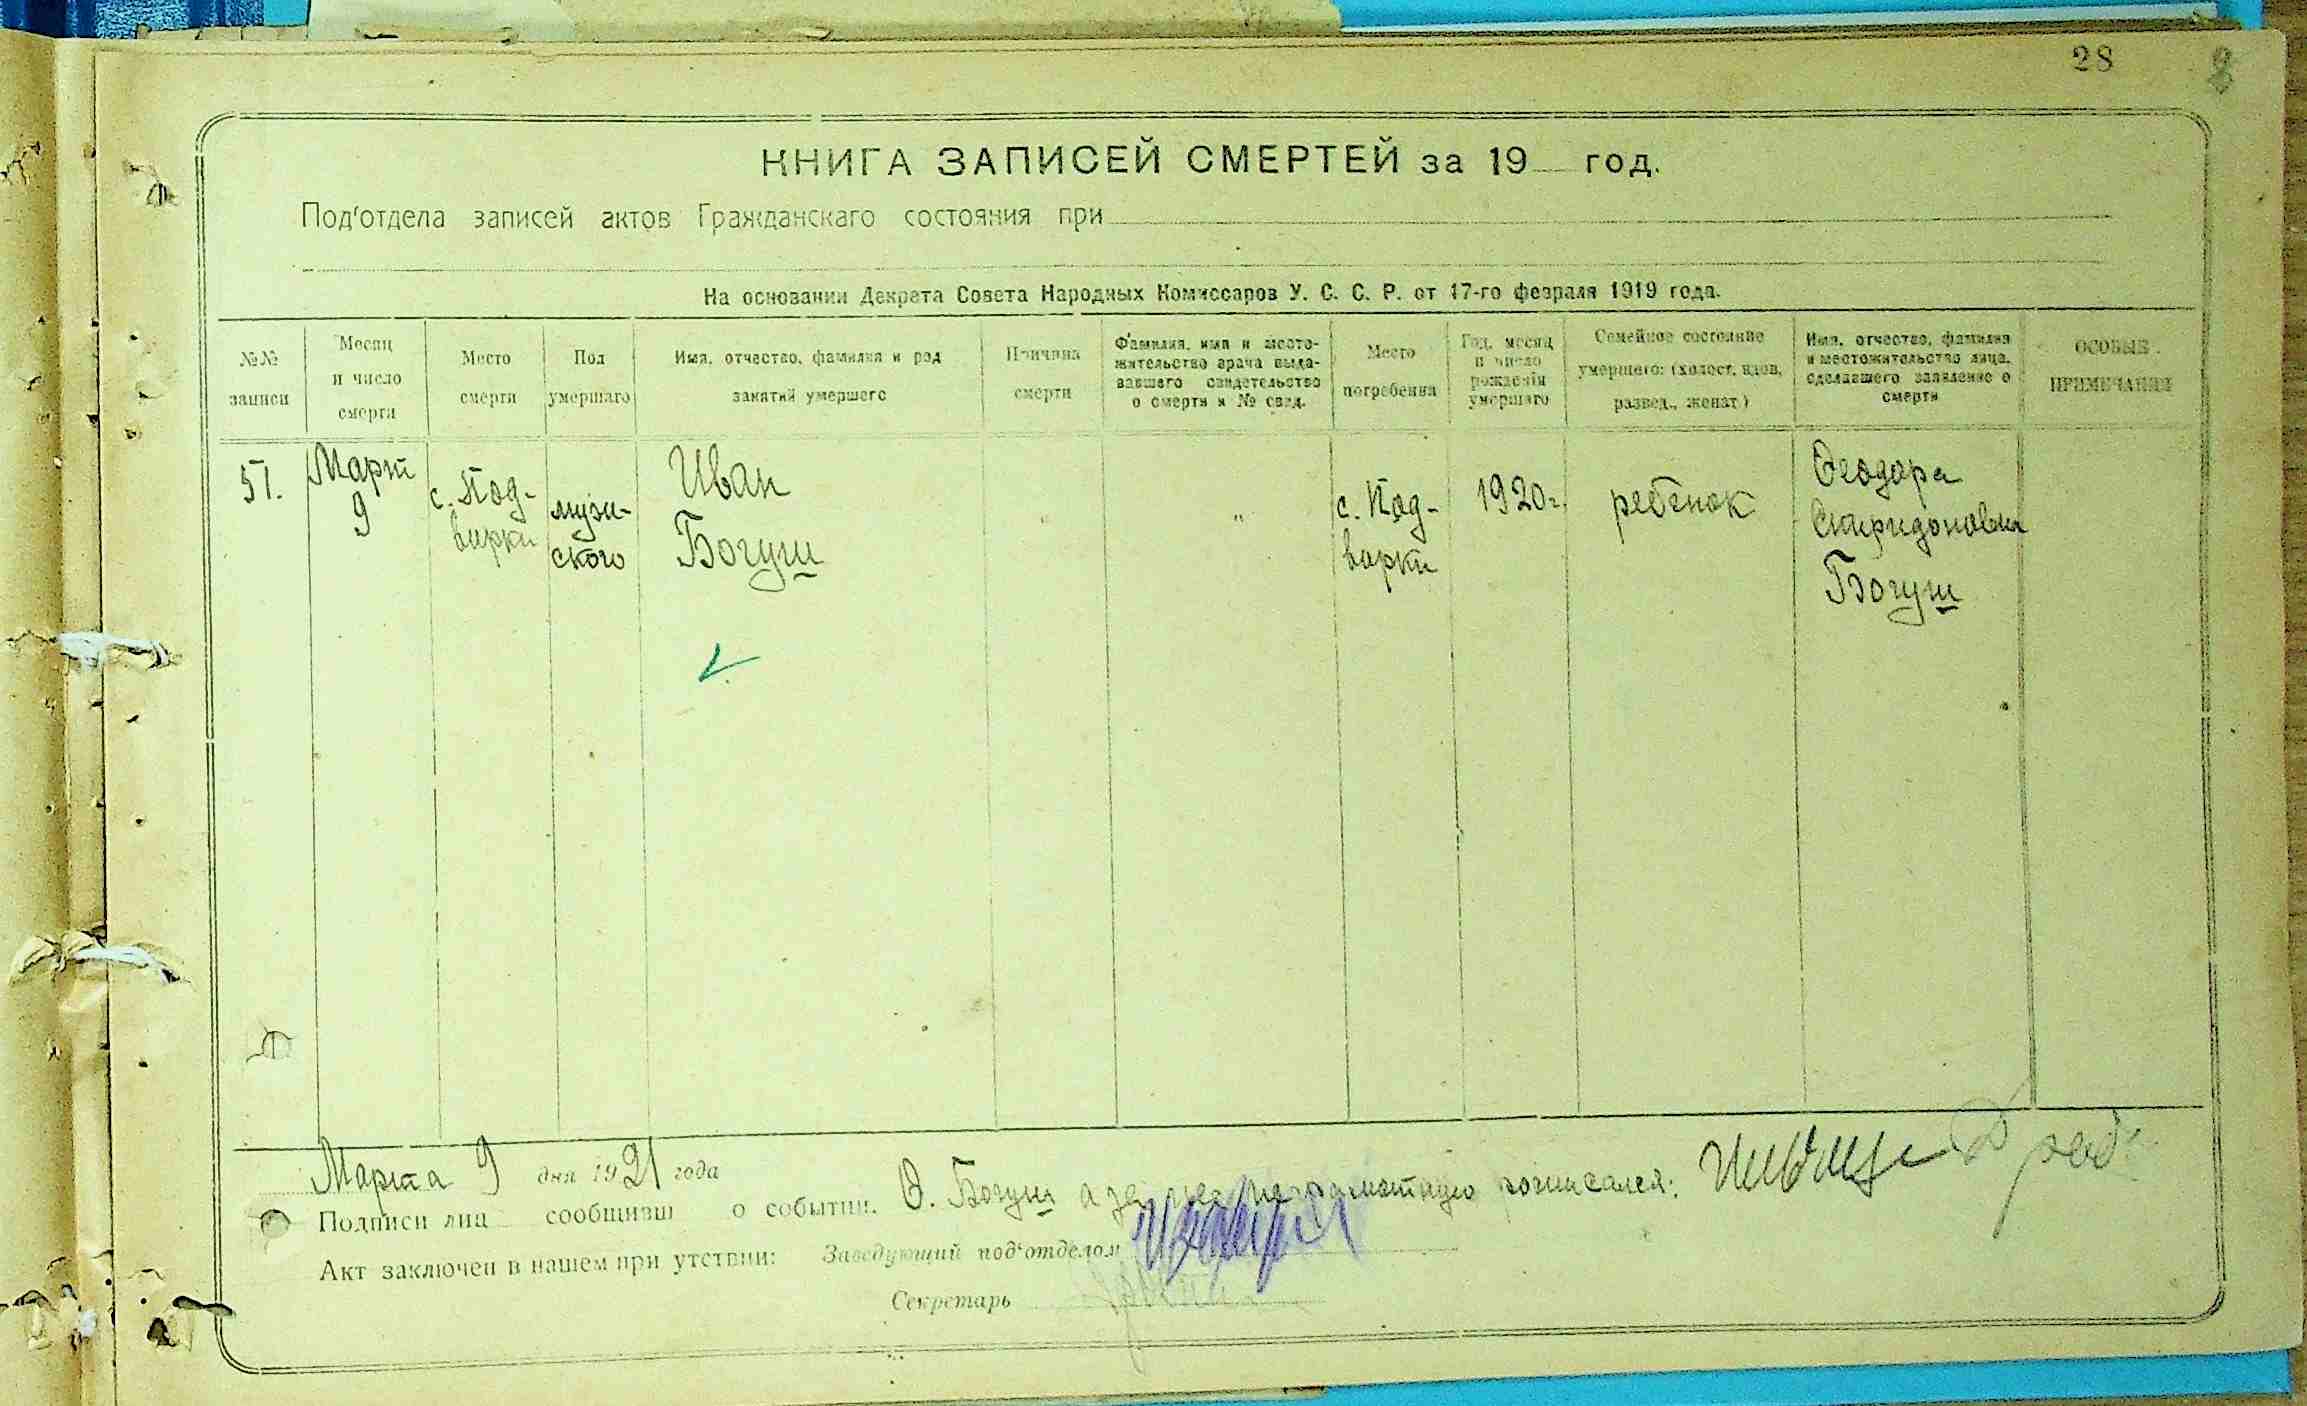 28
КНИГА ЗАПИСЕЙ СМЕРТЕЙ за 19 год.
Под'отдела записей актов Гражданскаго состояния при
На основании Декрета Совета Народных Комиссаров У. С. С. Р. от 17-го февраля 1919 года.
№№ записи
Месяц и число смерти
Место смерти
Пол умершаго
Имя, отчество, фамилия и род занятий умершего
Причина смерти
Фамилия, имя и место-
жительство врача выда-
вавшего свидетельство
о смерти и № свид.
Место погребения
Год, месяц и число рождения умершаго
Семейное состояние
умершего: (холост, вдов,
развед., женат)
Имя, отчество, фамилия
и местожительство лица,
сделавшего заявление о
смерти
ОСОБЫЕ ПРИМЕЧАНИЯ
51.
Март
9
с. Под-
варки
мужи-
ского
Иван
Богуш
"
"
с. Под-
варки
1920 г.
ребенок
Феодора
Спиридоновна
Богуш
Марта 9 дня 1921 года
Подписи лиц сообщивш о событии. Ф. Богуш а за нее неграмотную росписался:
Акт заключен в нашем при утствии: Заведующий под'отделом
Секретарь